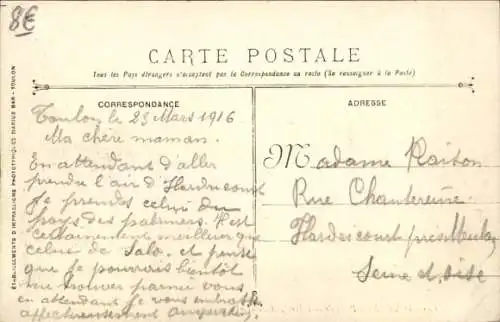 8€
CARTE POSTALE
Tous les Pays étrangers n'acceptent pas la Correspondance au recto (Se renseigner à la Poste)
CORRESPONDANCE
Toulon le 23 Mars 1916
Ma chère maman.
En attendant d'aller
prendre l'air d'Hardricourt
je prends celui du
pays des palmiers. Il est
certainement meilleur que
celui de Salo. et pense
que je pourrais bientôt
me trouver parmi vous
en attendant je vous
affectueusement
ADRESSE
Madame
Rue Chantereine
Hardricourt près Meulan
Seine et Oise
ÉTABLISSEMENTS D'IMPRESSIONS PHOTOTYPIQUES DARIUS BAR - TOULON